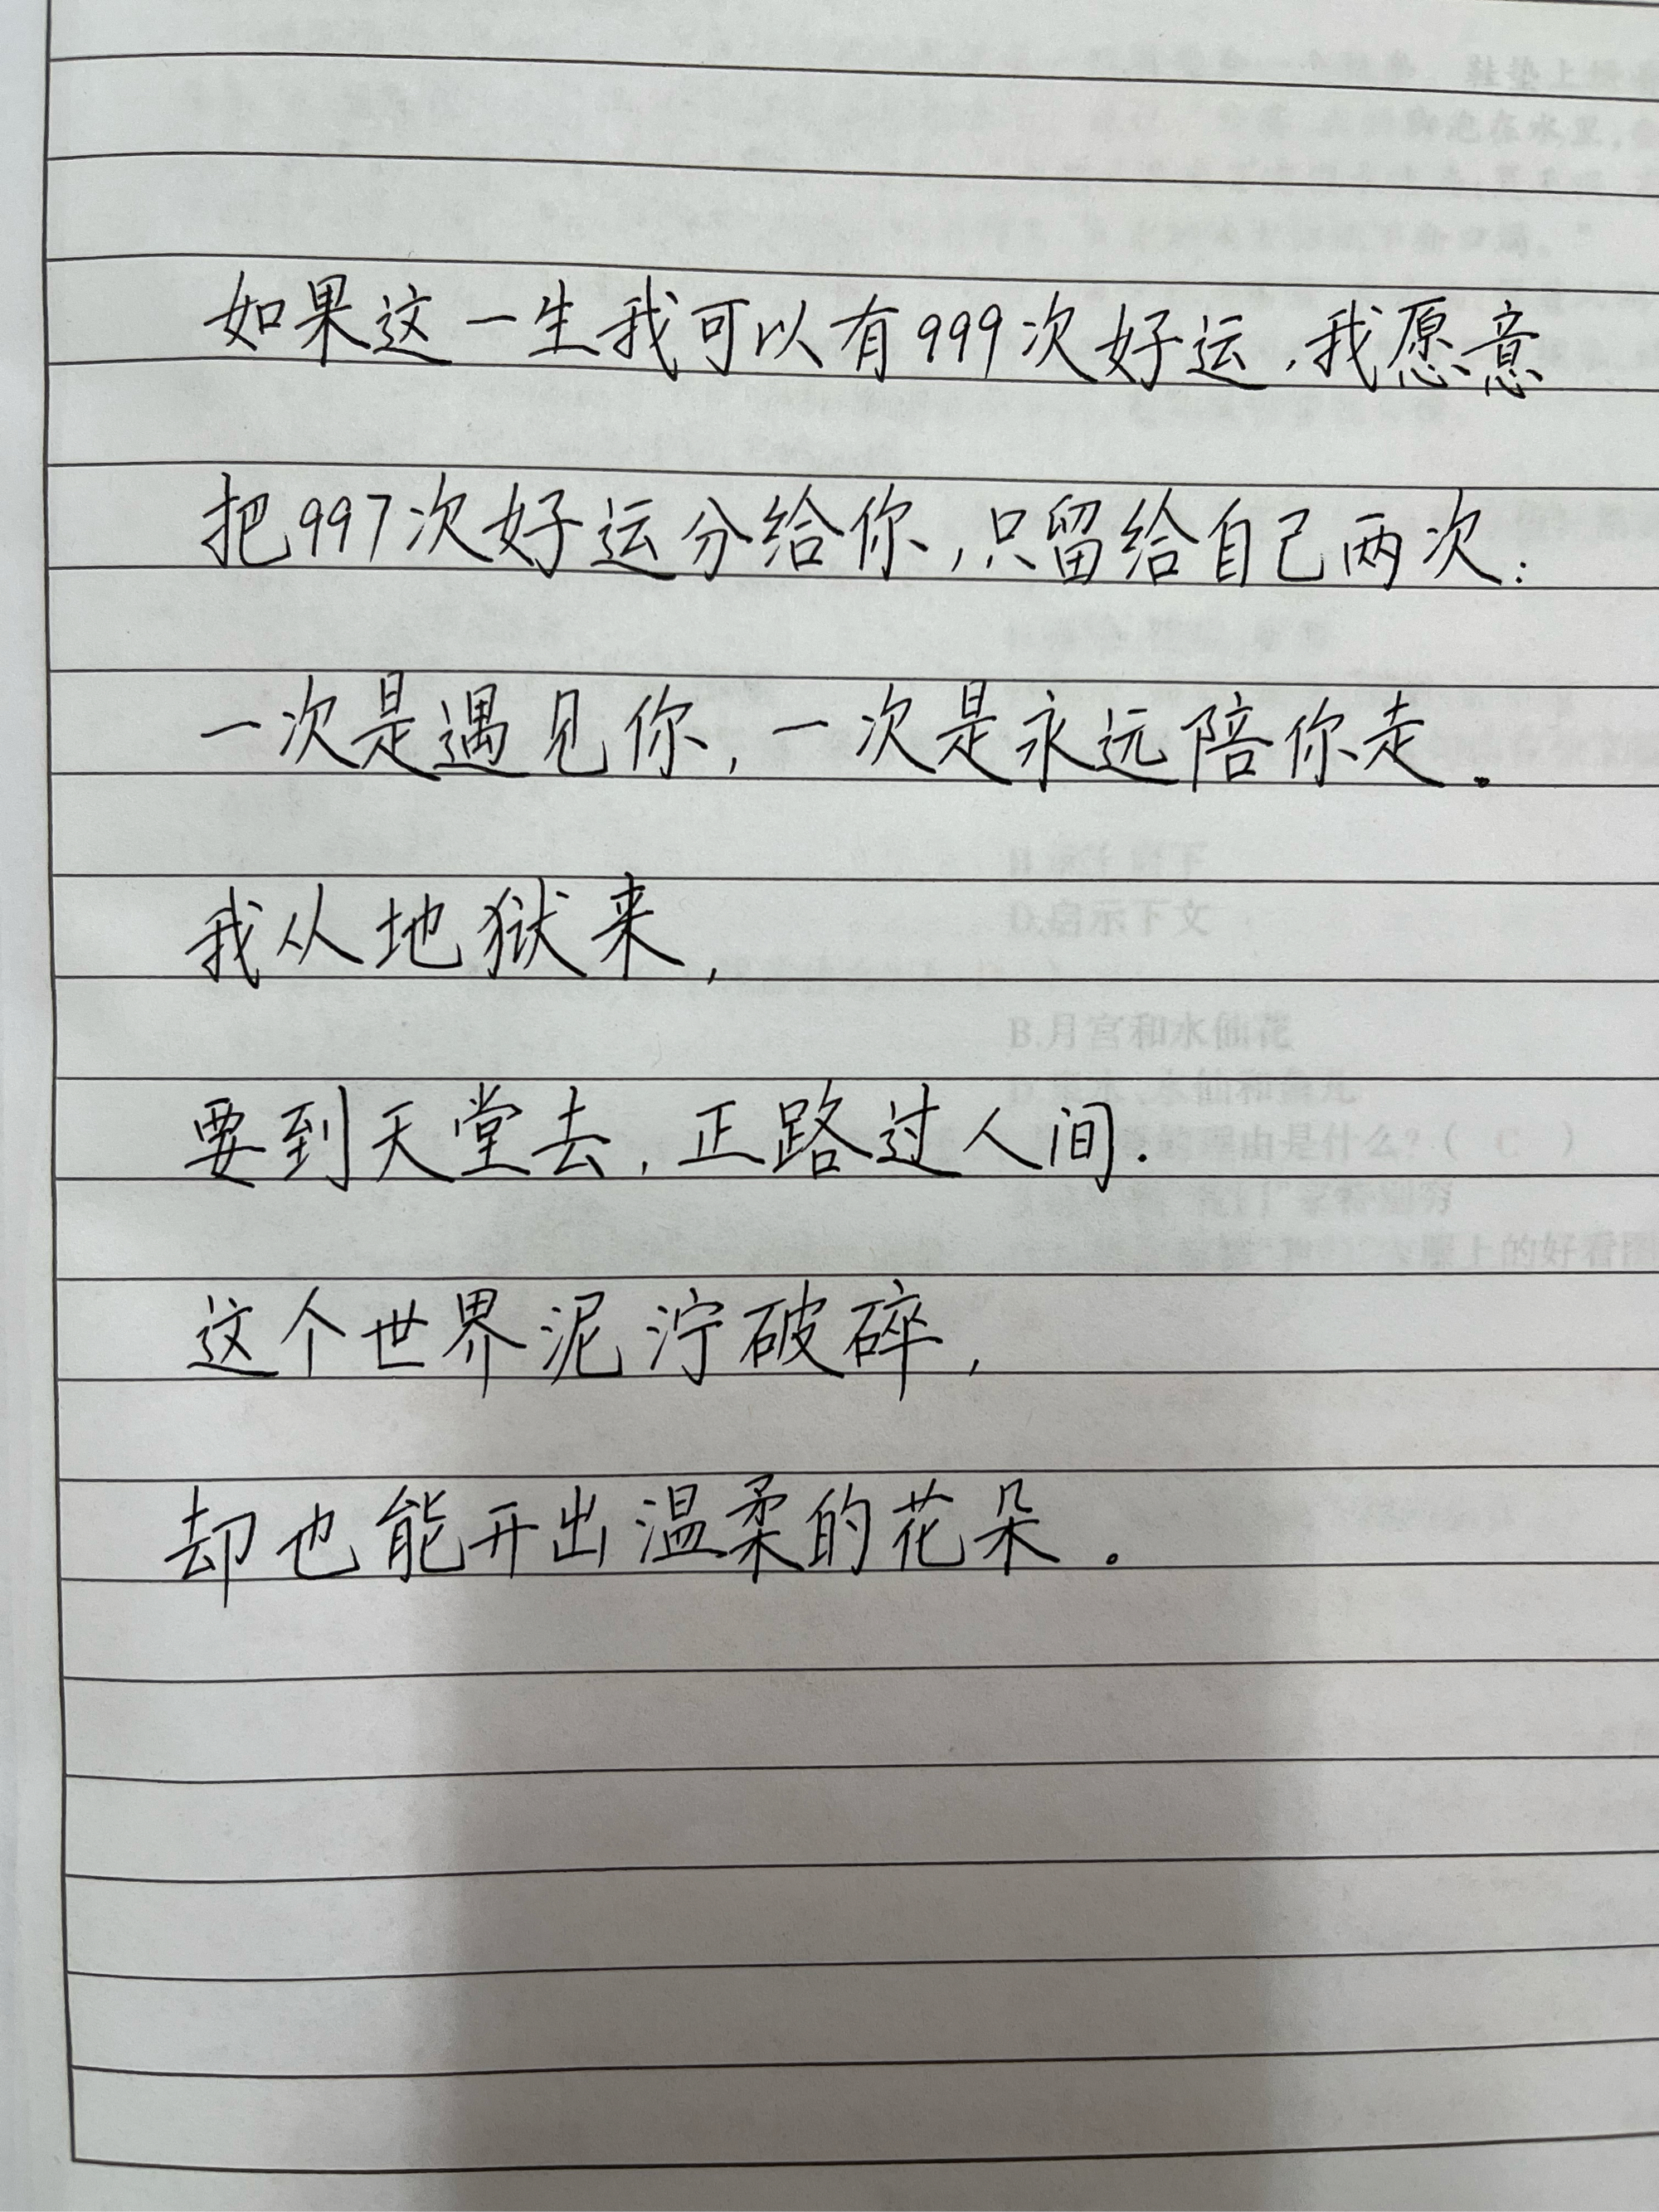 如果这一生我可以有999次好运,我愿意
把997次好运分给你,只留给自己两次:
一次是遇见你,一次是永远陪你走.
我从地狱来,
要到天堂去,正路过人间.
这个世界泥泞破碎,
却也能开出温柔的花朵.
D.启示下文
B.月宫和水仙花